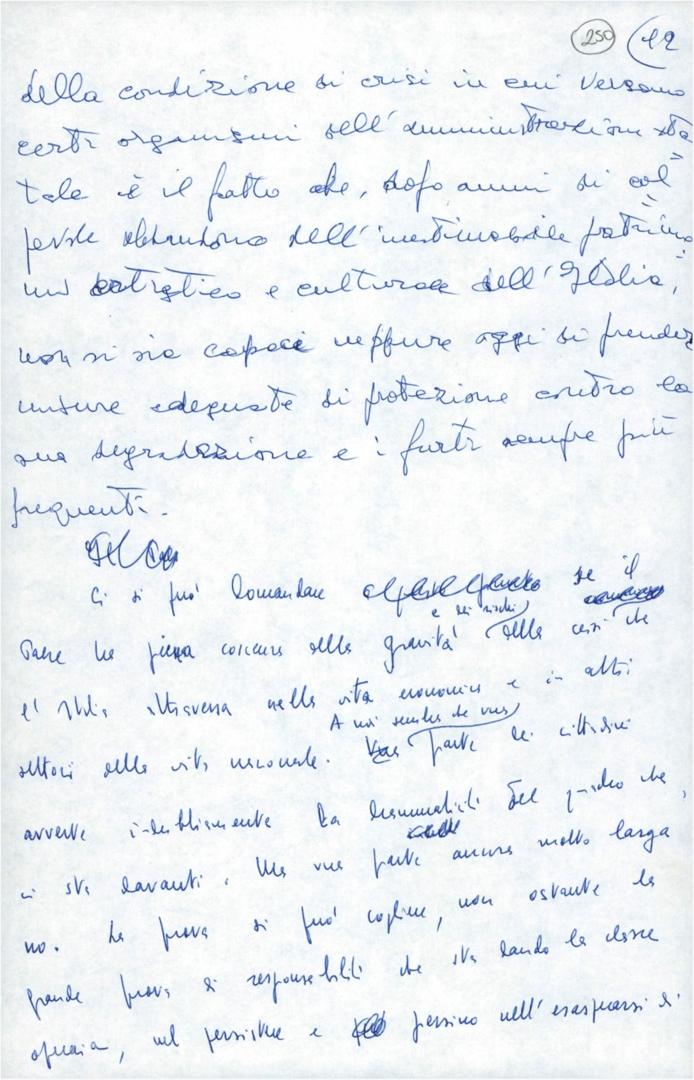 250 12
della condizione di crisi in cui versano
certi organismi dell'amministrazione sta
tale è il fatto che, dopo anni di col
pevole abbandono dell'inestimabile patrimo
nio artistico e culturale dell'Italia,
non si sia capaci neppure oggi di prender
misure adeguate di protezione contro la
sua degradazione e i furti sempre più
frequenti.
Ci si può domandare se il
e dei rischi
Paese ha piena coscienza della gravità della crisi che
l'Italia attraversa nella vita economica e in altri
A noi sembra che una
settori della vita nazionale. parte dei cittadini
avverte indubbiamente la drammaticità del quadro che
ci sta davanti. Ma una parte ancora molto larga
no. La prova si può cogliere, non ostante la
grande prova di responsabilità che sta dando la classe
operaia, nel persistere e persino nell'esasperarsi di